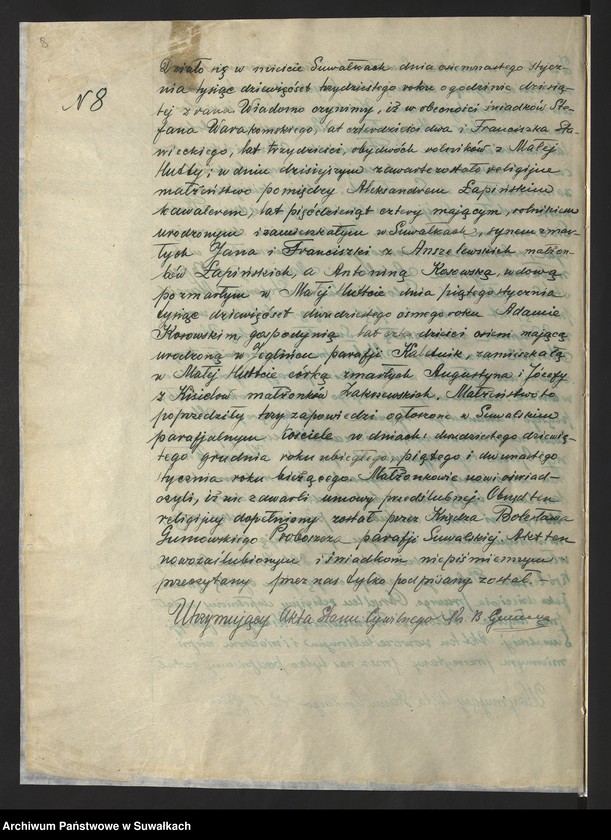 8
N 8
Działo się w mieście Suwałkach dnia osiemnastego stycz-
nia tysiąc dziewięćset trzydziestego roku o godzinie dziesią-
tej z rana. Wiadomo czynimy, iż w obecności świadków Ste-
fana Warakomskiego, lat czterdzieści dwa i Franciszka Sta-
wieckiego, lat trzydzieści, obydwóch rolników z Małej
Hutty; w dniu dzisiejszym zawarte zostało religijne
małżeństwo pomiędzy Aleksandrem Łapińskim
kawalerem, lat pięćdziesiąt cztery mającym, rolnikiem
urodzonym i zamieszkałym w Suwałkach, synem zmar-
łych Jana i Franciszki z Anszelewskich małżon-
ków Łapińskich, a Antoniną Kosowską, wdową
po zmarłym w Małej Hutcie dnia piątego stycznia
tysiąc dziewięćset dwudziestego ósmego roku Adamie
Kosowskim, gospodynią lat osiem mającą
urodzoną w Jeglińcu parafji Kaletnik, zamieszkałą
w Małej Hutcie córką zmarłych Augustyna i Józefy
z małżonków Zakrzewskich. Małżeństwo to
poprzedziły trzy zapowiedzi ogłoszone w Suwalskim
parafjalnym kościele w dniach: dwudziestego dziewią-
tego grudnia roku ubiegłego, piątego i dwunastego
stycznia roku bieżącego. Małżonkowie nowi oświad-
czyli, iż nie zawarli umowy przedślubnej. Obrzęd ten
religijny dopełniony został przez Księdza Bolesława
Gumowskiego Proboszcza parafji Suwalskiej. Akt ten
nowozaślubionym i świadkom niepiśmiennym
przeczytany przez nas tylko podpisany został. –
Utrzymujący Akta Stanu Cywilnego Ks. B.
Archiwum Państwowe w Suwałkach